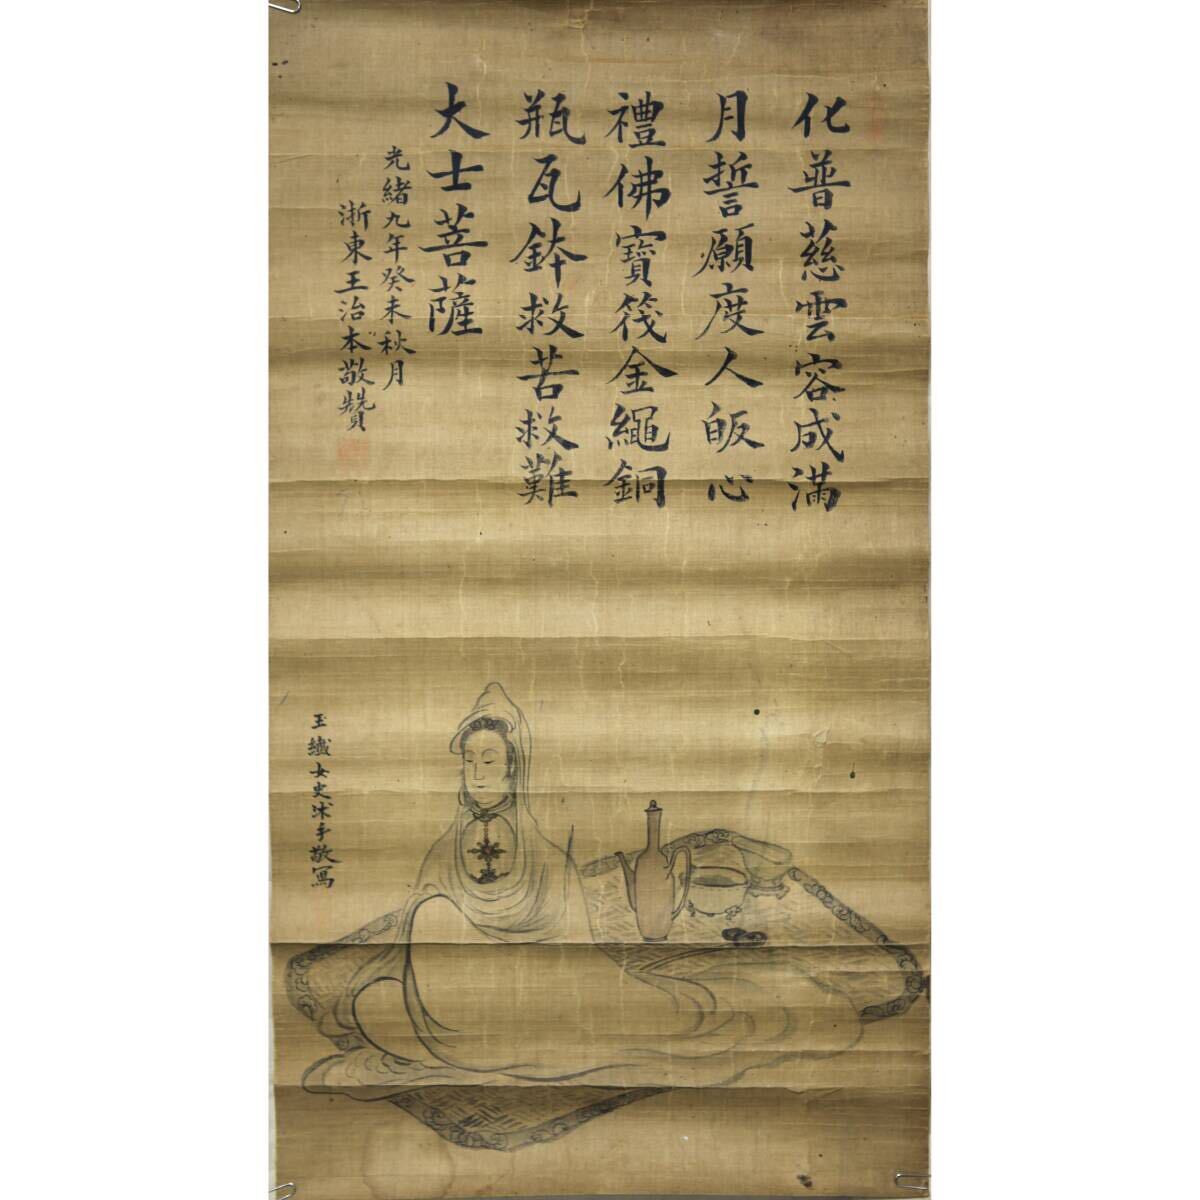 化普慈雲容成滿
月誓願度人皈心
禮佛寶筏金繩銅
瓶瓦鉢救苦救難
大士菩薩
光緒九年癸未秋月
浙東王治本敬贊
玉纖女史沐手敬寫